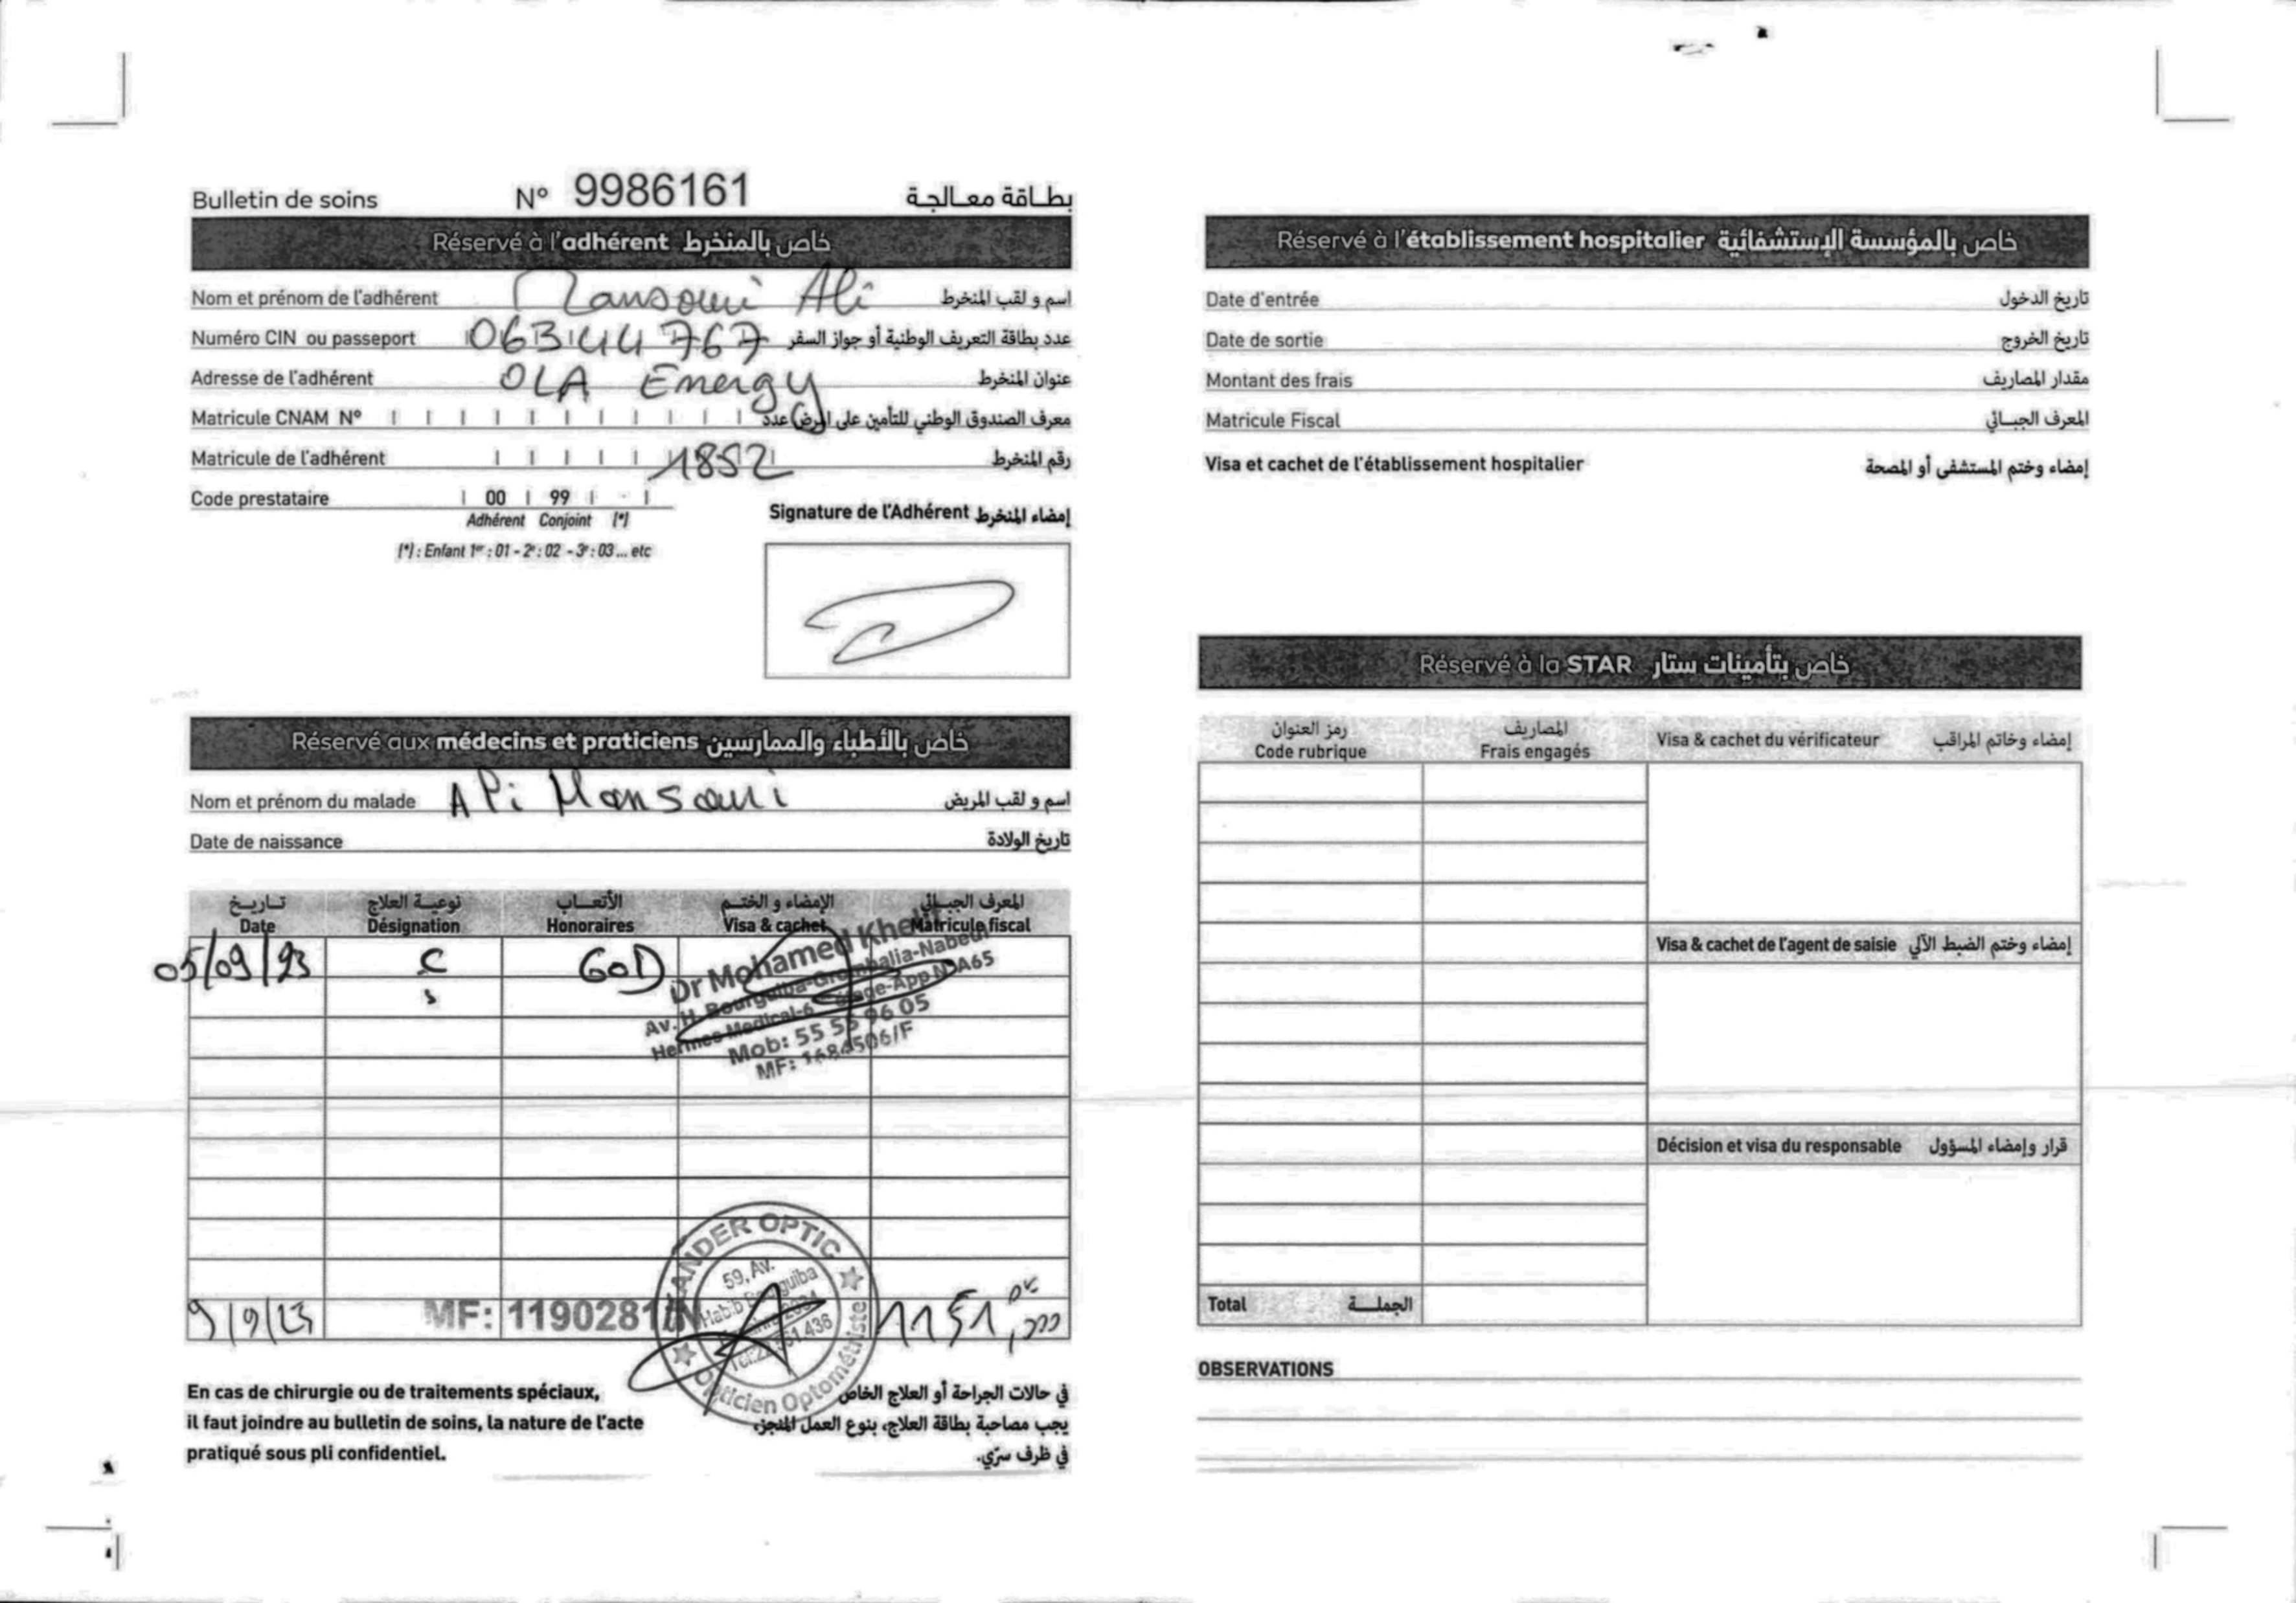 Bulletin de soins N° 9986161 بطاقة معالجة
Réservé à l'adhérent خاص بالمنخرط
Nom et prénom de l'adhérent Mansouri Ali اسم و لقب المنخرط
Numéro CIN ou passeport 06344767 عدد بطاقة التعريف الوطنية أو جواز السفر
Adresse de l'adhérent OLA Energy عنوان المنخرط
Matricule CNAM N° معرف الصندوق الوطني للتأمين على المرض عدد
Matricule de l'adhérent 1852 رقم المنخرط
Code prestataire 00 99
Adhérent Conjoint (*)
(*) : Enfant 1er : 01 - 2e : 02 - 3e : 03 ... etc
Signature de l'Adhérent إمضاء المنخرط
Réservé aux médecins et praticiens خاص بالأطباء والممارسين
Nom et prénom du malade Ali Mansouri اسم و لقب المريض
Date de naissance تاريخ الولادة
تاريخ نوعية العلاج الأتعاب الإمضاء و الختم المعرف الجبائي
Date Désignation Honoraires Visa & cachet Matricule fiscal
05/09/23 C 60D
s
Dr Mohamed Khelif
Av. H. Bourguiba-Grombalia-Nabeul
Hermes Medical-6 étage-App N°A65
Mob: 55 55 96 05
MF: 1684506/F
9/9/23 MF: 1190281/N 1151,000
ANDER OPTIC
59, Av.
Habib Bourguiba
Opticien Optométriste
En cas de chirurgie ou de traitements spéciaux,
il faut joindre au bulletin de soins, la nature de l'acte
pratiqué sous pli confidentiel.
في حالات الجراحة أو العلاج الخاص
يجب مصاحبة بطاقة العلاج، بنوع العمل المنجز،
في ظرف سرّي.
Réservé à l'établissement hospitalier خاص بالمؤسسة الإستشفائية
Date d'entrée تاريخ الدخول
Date de sortie تاريخ الخروج
Montant des frais مقدار المصاريف
Matricule Fiscal المعرف الجبائي
Visa et cachet de l'établissement hospitalier إمضاء وختم المستشفى أو المصحة
Réservé à la STAR خاص بتأمينات ستار
رمز العنوان المصاريف
Code rubrique Frais engagés Visa & cachet du vérificateur إمضاء وخاتم المراقب
Visa & cachet de l'agent de saisie إمضاء وختم الضبط الآلي
Décision et visa du responsable قرار وإمضاء المسؤول
Total الجملة
OBSERVATIONS